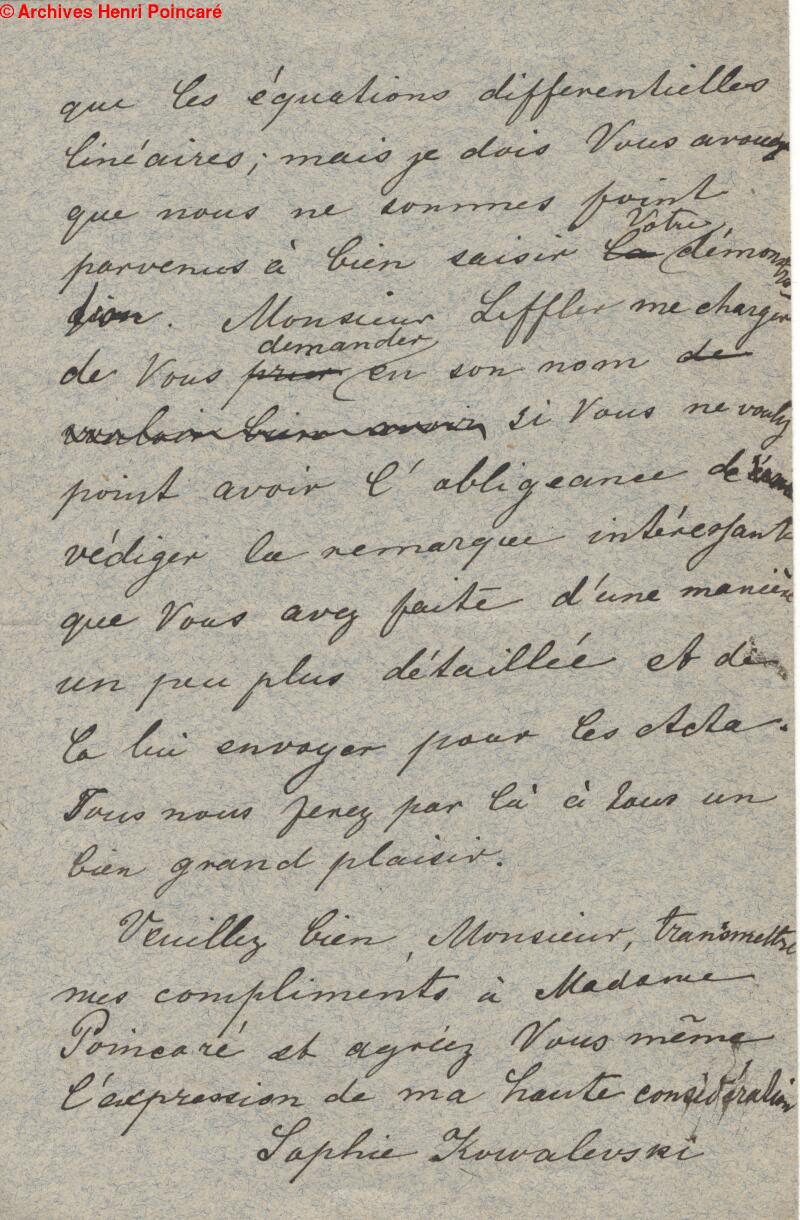 © Archives Henri Poincaré
que les équations differentielles
linéaires; mais je dois Vous avouer
que nous ne sommes point
parvenus à bien saisir la Votre démonstra-
tion. Monsieur Leffler me charger
de Vous prier demander en son nom de
vouloir bien avoir si Vous ne voulez
point avoir l'obligeance de
rédiger la remarque intéressante
que Vous avez faite d'une manière
un peu plus détaillée et de
la lui envoyer pour les Acta.
Vous nous ferez par là à tous un
bien grand plaisir.
Veuillez bien, Monsieur, transmettre
mes compliments à Madame
Poincaré et agréez Vous même
l'expression de ma haute considération
Sophie Kowalevski